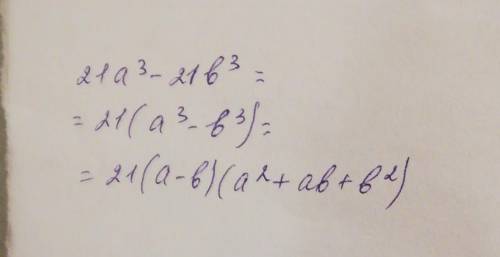 21a³ - 21b³ =
= 21(a³ - b³) =
= 21(a - b)(a² + ab + b²)